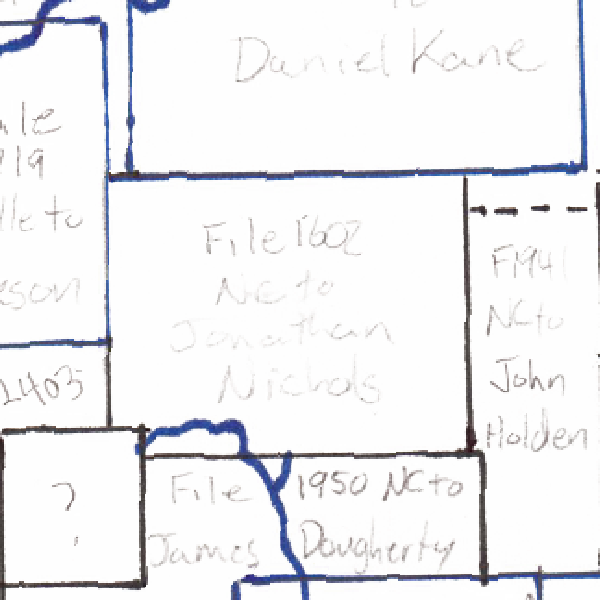 to
Daniel Kane
File 1602
NC to
Jonathan
Nichols
F1941
NC to
John
Holden
719
1403
?
File 1950 NC to
James Dougherty